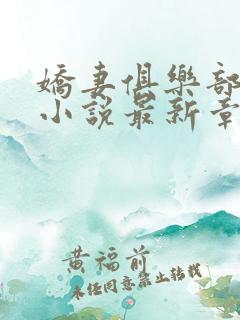 嬌妻俱樂部
小說最新章
黃福前
未经同意禁止转载